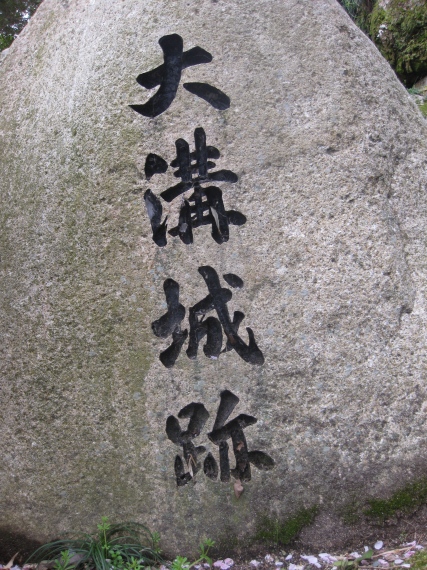 大溝城跡